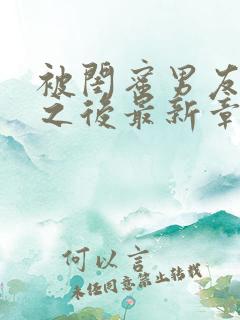 被閨蜜男友
之後最新章
何以言
未经同意禁止转载